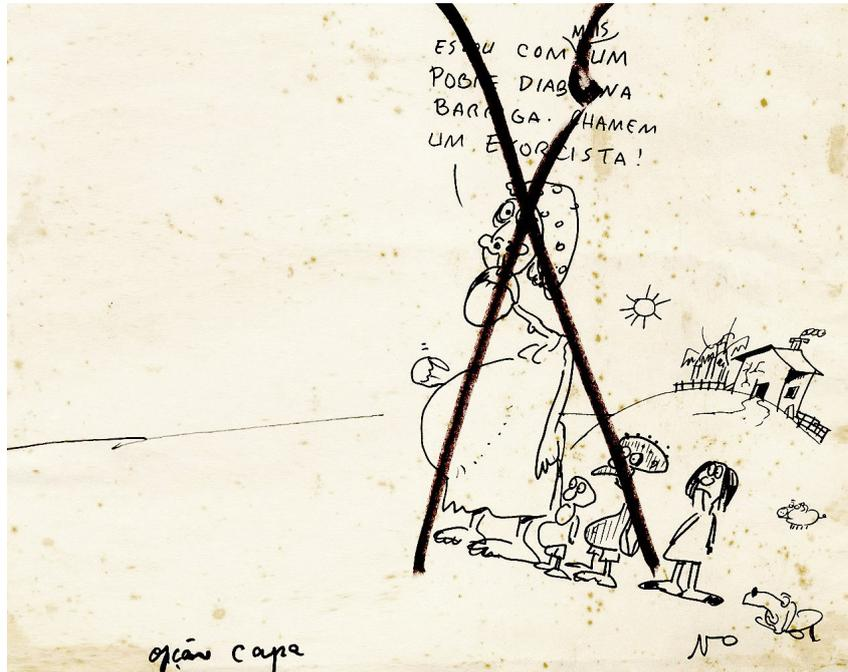 MAIS
ESTOU COM UM
POBRE DIABO NA
BARRIGA. CHAMEM
UM EXORCISTA!
opção capa